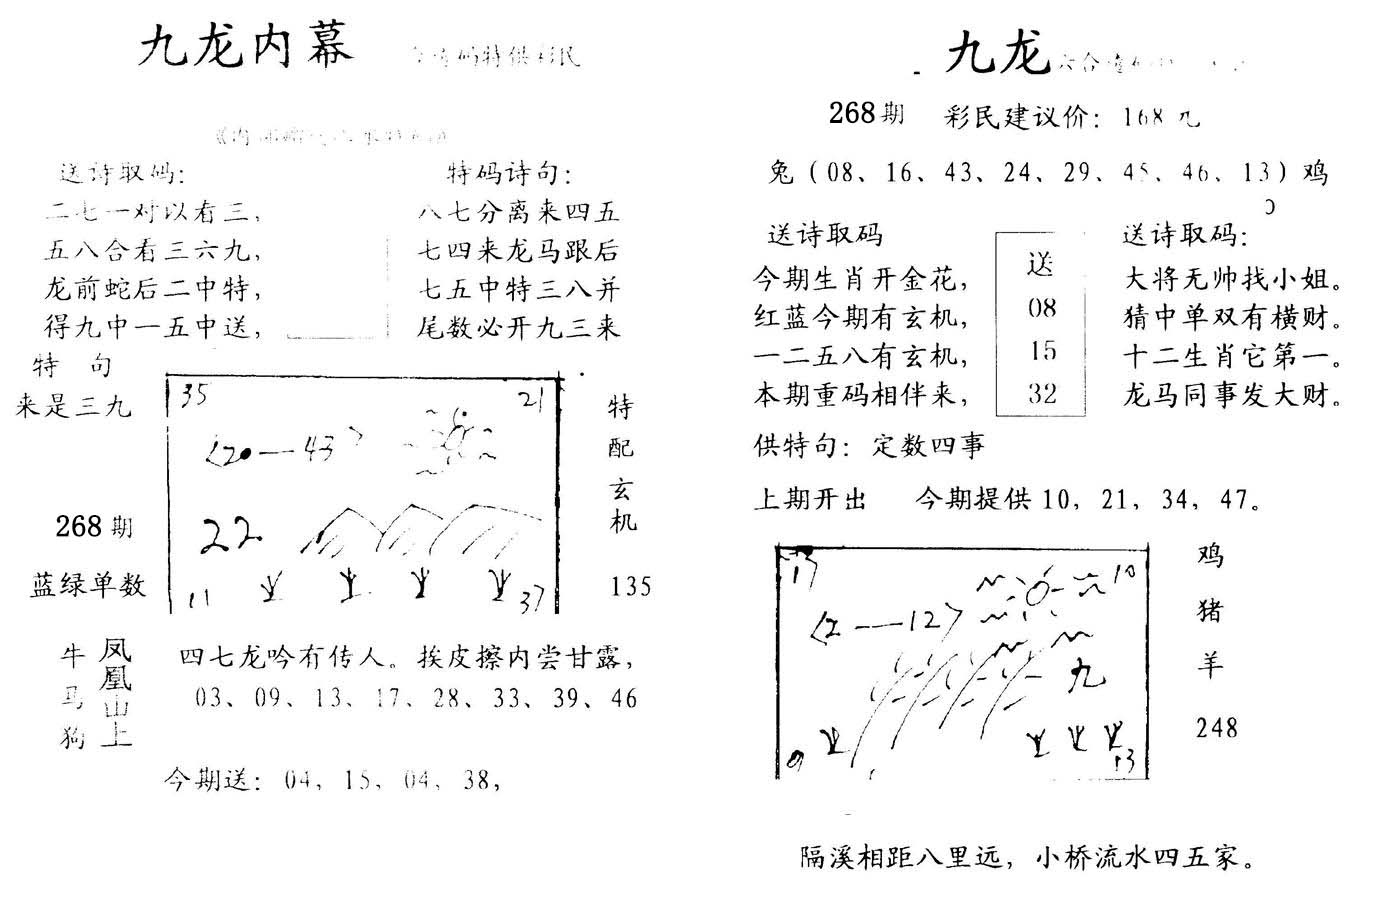 九龙内幕
码特供彩民
送诗取码：
二七一对以看三，
五八合看三六九，
龙前蛇后二中特，
得九中一五中送，
特码诗句：
八七分离来四五
七四来龙马跟后
七五中特三八并
尾数必开九三来
特 句
来是三九
35
21
〈20—43〉
22
11
37
特配玄机
135
268期
蓝绿单数
牛马狗
凤凰山上
四七龙吟有传人。挨皮擦内尝甘露，
03、09、13、17、28、33、39、46
今期送：04，15，04，38，
九龙六合
268期 彩民建议价：168元
兔（08、16、43、24、29、45、46、13）鸡
送诗取码
今期生肖开金花，
红蓝今期有玄机，
一二五八有玄机，
本期重码相伴来，
送
08
15
32
送诗取码：
大将无帅找小姐。
猜中单双有横财。
十二生肖它第一。
龙马同事发大财。
供特句：定数四事
上期开出 今期提供10，21，34，47。
10
〈2—12〉
九
13
鸡
猪
羊
248
隔溪相距八里远，小桥流水四五家。